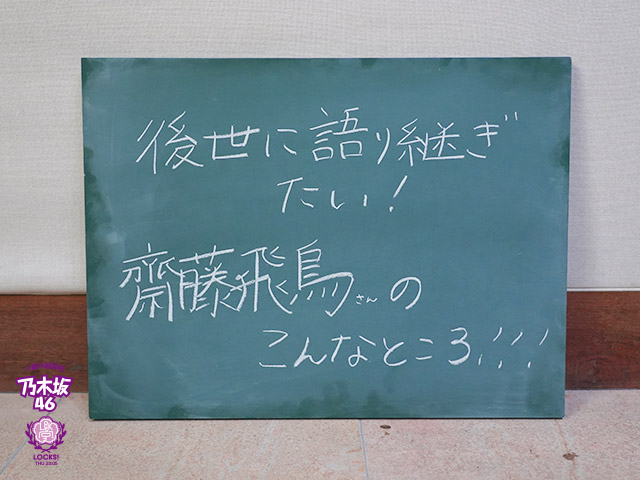 後世に語り継ぎ
たい!
齋藤飛鳥さんの
こんなところ!!!
乃木坂
46
LOCKS!